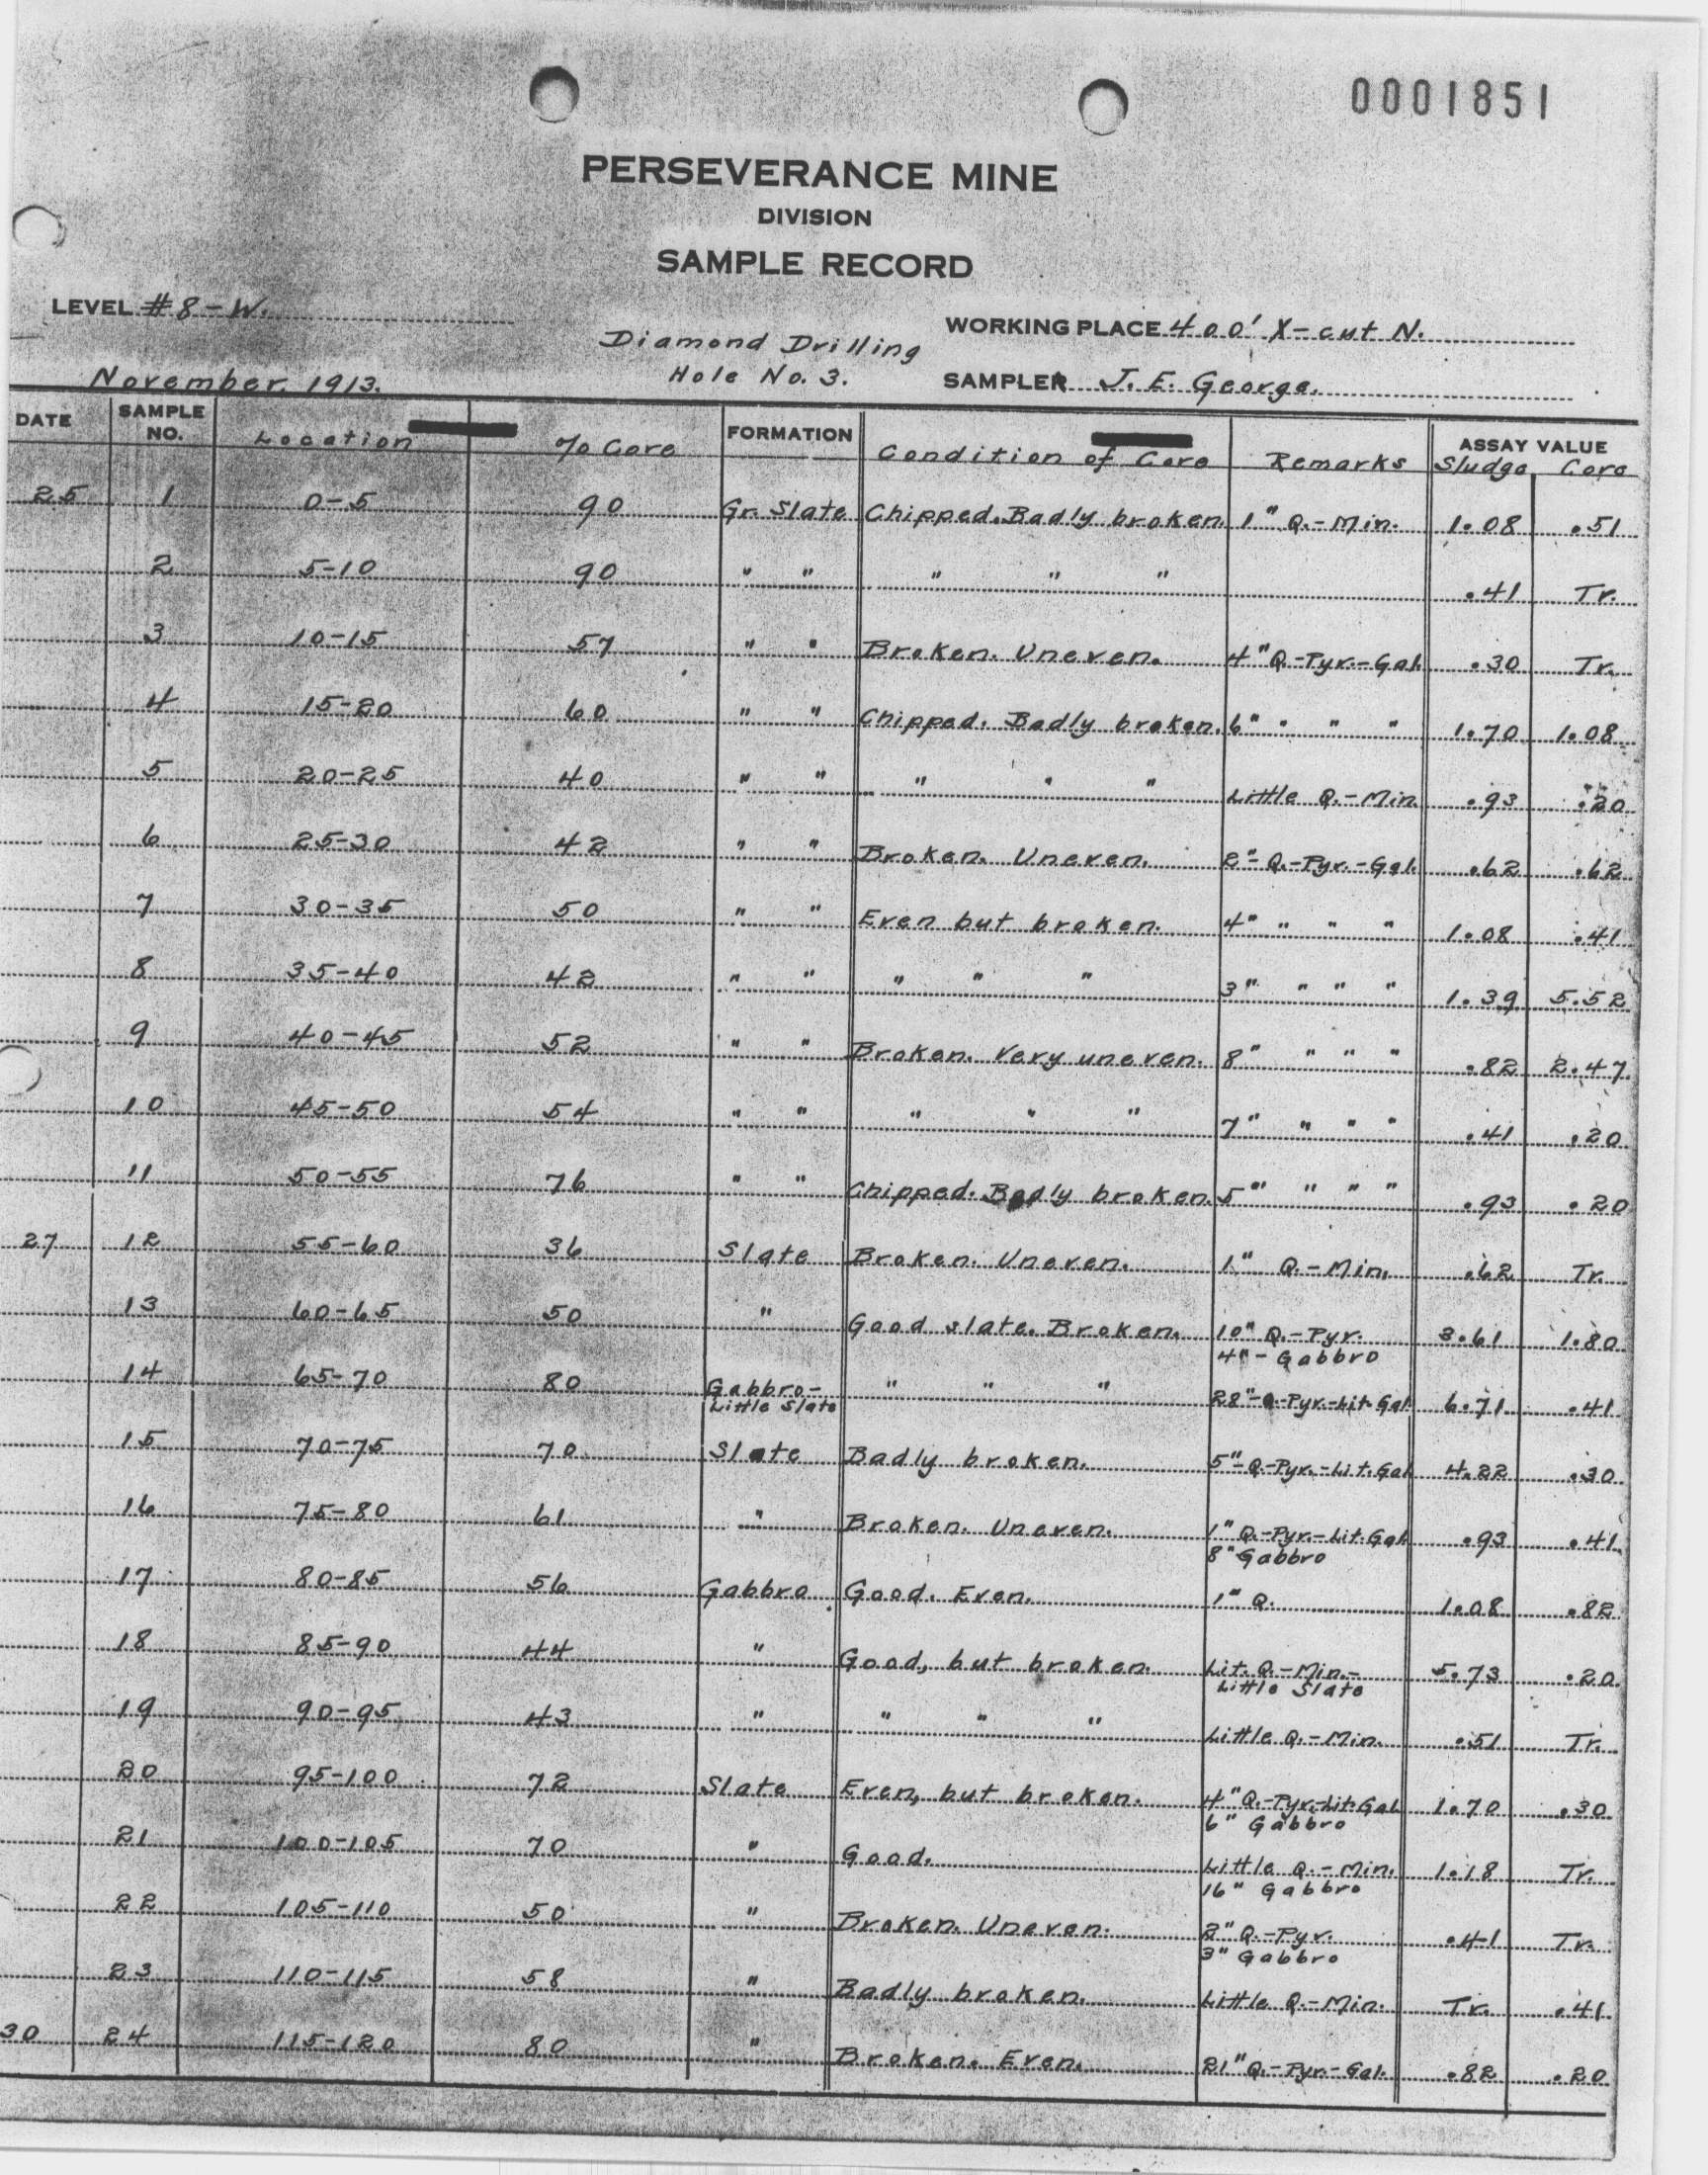 0001851
PERSEVERANCE MINE
DIVISION
SAMPLE RECORD
LEVEL #8-W. WORKING PLACE 400' X-cut N.
Diamond Drilling
Hole No. 3.
November, 1913. SAMPLER J. E. George.
DATE SAMPLE NO. Location % Core FORMATION Condition of Core Remarks ASSAY VALUE Sludge Core
25 1 0-5 90 Gr. Slate Chipped. Badly broken. 1" Q.-Min. 1.08 .51
2 5-10 90 " " " " " .41 Tr.
3 10-15 57 " " Broken. Uneven. 4" Q.-Pyr.-Gal. .30 Tr.
4 15-20 60 " " Chipped. Badly broken. 6" " " " 1.70 1.08
5 20-25 40 " " " " " Little Q.-Min. .93 .20
6 25-30 42 " " Broken. Uneven. 2"-Q.-Pyr.-Gal. .62 .62
7 30-35 50 " " Even but broken. 4" " " " 1.08 .41
8 35-40 42 " " " " " 3" " " " 1.39 5.52
9 40-45 52 " " Broken. Very uneven. 8" " " " .82 2.47
10 45-50 54 " " " " " 7" " " " .41 .20
11 50-55 76 " " Chipped. Badly broken. 5" " " " .93 .20
27 12 55-60 36 Slate Broken. Uneven. 1" Q.-Min. .62 Tr.
13 60-65 50 " Good slate. Broken. 10" Q.-Pyr. 3.61 1.80
4"-Gabbro
14 65-70 80 Gabbro- " " " 28"-Q.-Pyr.-Lit. Gal. 6.71 .41
Little Slate
15 70-75 70 Slate Badly broken. 5"-Q.-Pyr.-Lit. Gal. 4.22 .30
16 75-80 61 " Broken. Uneven. 1" Q.-Pyr.-Lit. Gal. .93 .41
8" Gabbro
17 80-85 56 Gabbro Good. Even. 1" Q. 1.08 .82
18 85-90 44 " Good, but broken. Lit. Q.-Min.- 5.73 .20
Little Slate
19 90-95 43 " " " " Little Q.-Min. .51 Tr.
20 95-100 72 Slate Even, but broken. 4" Q.-Pyr.-Lit. Gal. 1.70 .30
6" Gabbro
21 100-105 70 " Good. Little Q.-Min. 1.18 Tr.
16" Gabbro
22 105-110 50 " Broken. Uneven. 2" Q.-Pyr. .41 Tr.
3" Gabbro
23 110-115 58 " Badly broken. Little Q.-Min. Tr. .41
30 24 115-120 80 " Broken. Even. 21" Q.-Pyr.-Gal. .82 .20